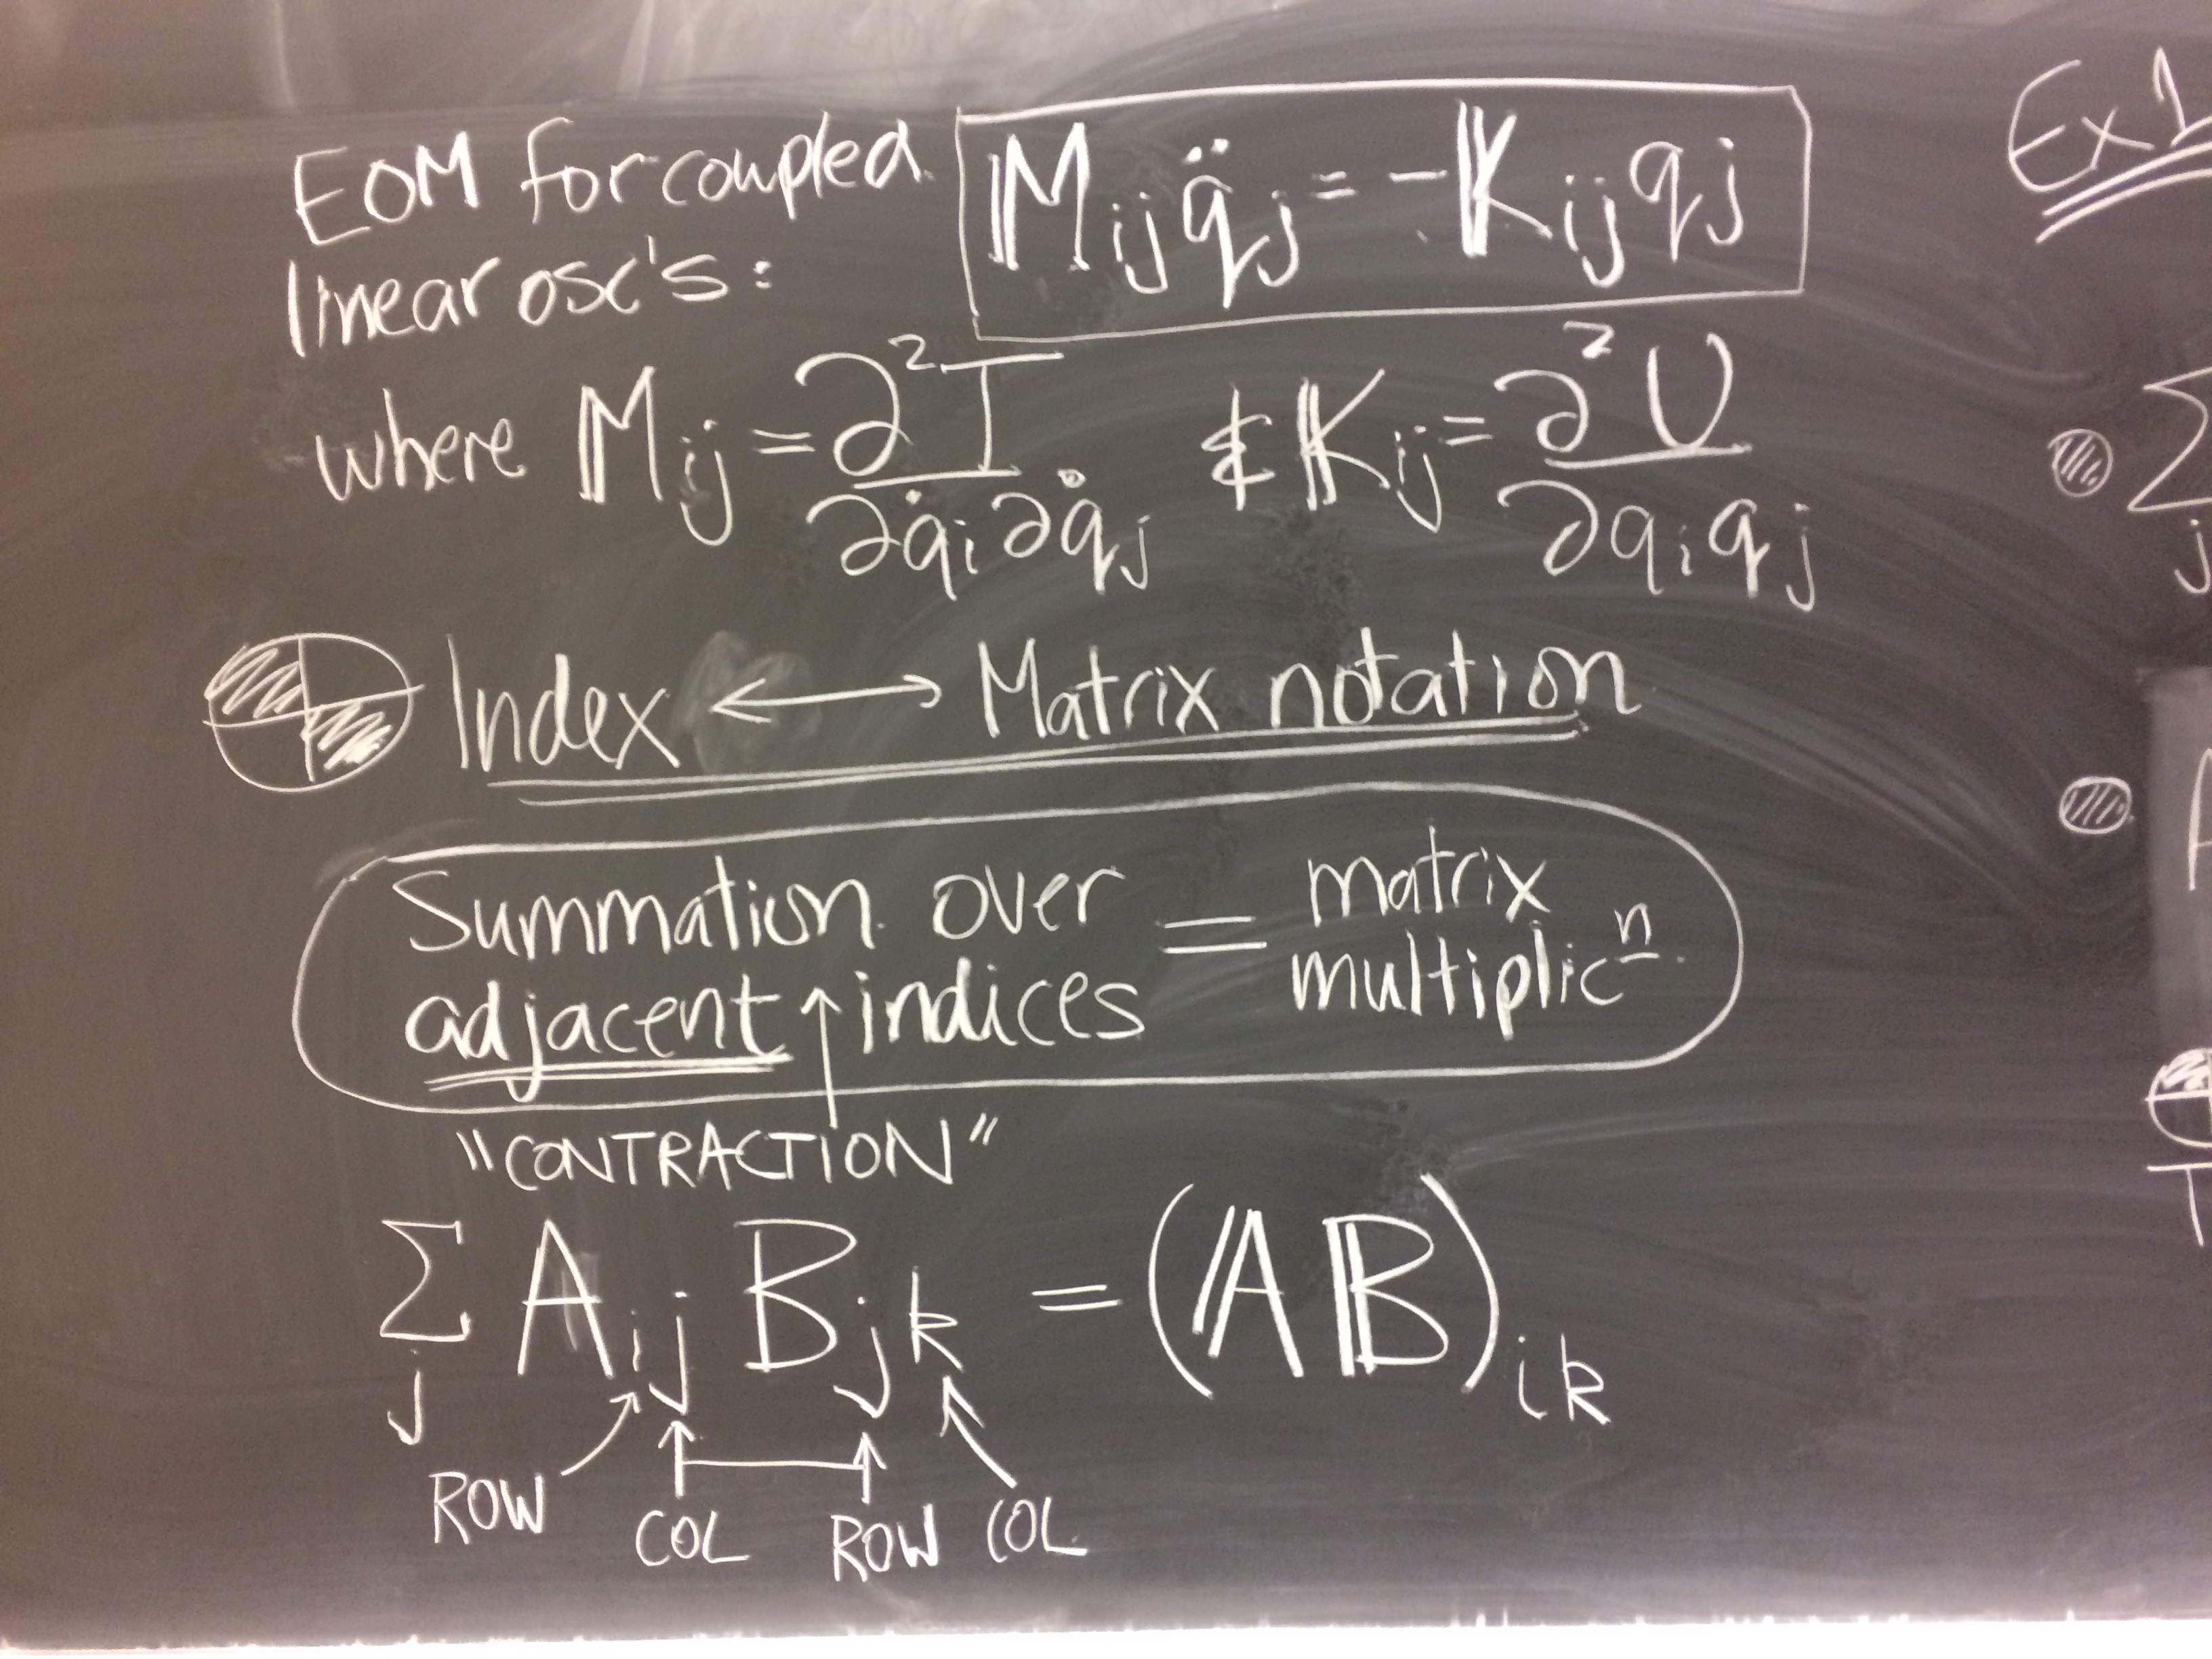 EOM for coupled linear osc's: M_ij q̈_j = -K_ij q_j
where M_ij = ∂²T / ∂q̇_i ∂q̇_j & K_ij = ∂²U / ∂q_i q_j
Index ⟷ Matrix notation
Summation over adjacent indices = matrix multiplicⁿ
"CONTRACTION"
Σ_j A_ij B_jk = (AB)_ik
ROW COL ROW COL
Ex 1
Σ
j